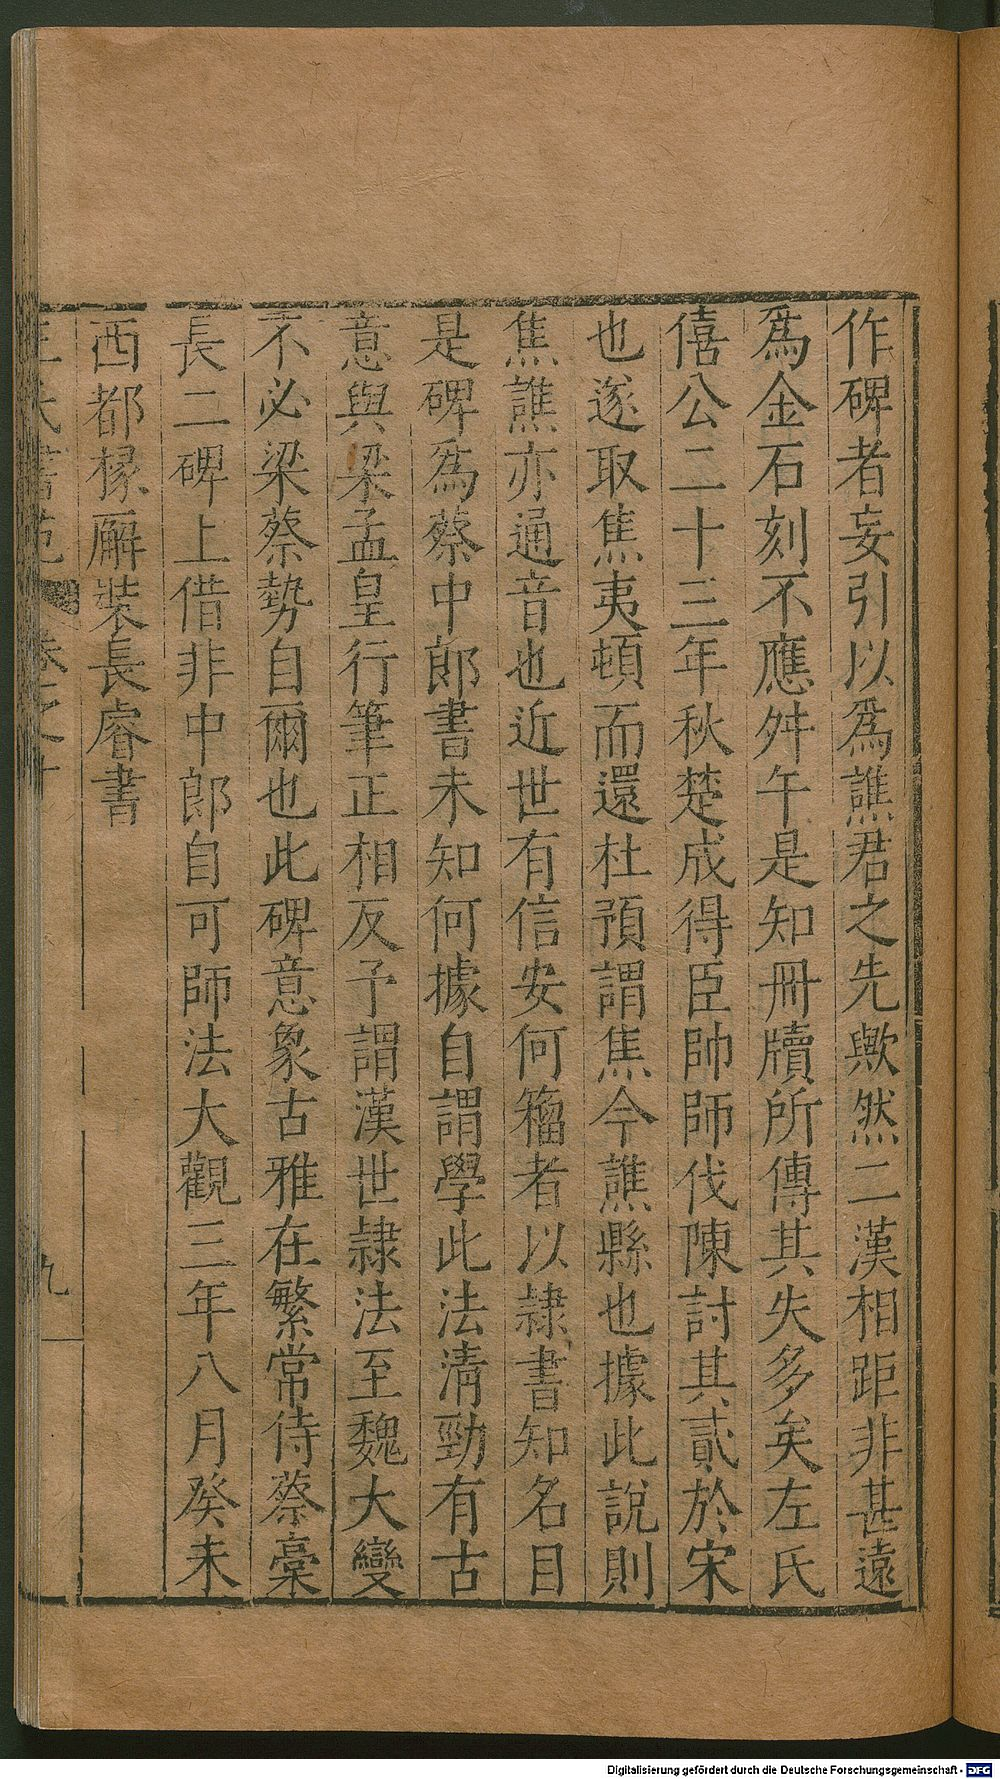 作碑者妄引以爲譙君之先歟然二漢相距非甚遠
爲金石刻不應舛午是知冊牘所傳其失多矣左氏
僖公二十三年秋楚成得臣帥師伐陳討其貳於宋
也遂取焦夷頓而還杜預謂焦今譙縣也據此說則
焦譙亦通音也近世有信安何籀者以隷書知名目
是碑爲蔡中郎書未知何據自謂學此法淸勁有古
意與梁孟皇行筆正相反予謂漢世隷法至魏大變
不必梁蔡勢自爾也此碑意象古雅在繁常侍蔡稾
長二碑上借非中郎自可師法大觀三年八月癸未
西都掾廨裝長睿書
王氏書苑 卷之十 九
Digitalisierung gefördert durch die Deutsche Forschungsgemeinschaft - DFG